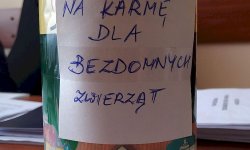 NA KARMĘ
DLA
BEZDOMNYCH
ZWIERZĄT